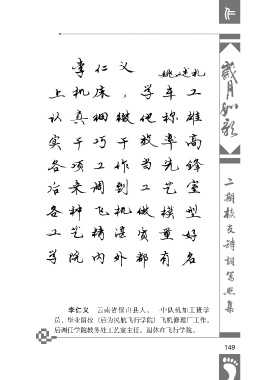 李仁义
姚义礼
上机床，学车工
认真细微促称雄
实干巧干效率高
各项工作当先锋
后来调到工艺室
各种飞机做模型
工艺精湛质量好
学院内外都有名
李仁义 云南省保山县人，一中队机加工班学
员，毕业留校（后为民航飞行学院）飞机修理厂工作。
后调任学院教务处工艺室主任。退休在飞行学院。
岁月如歌
二期校友诗词写照集
149